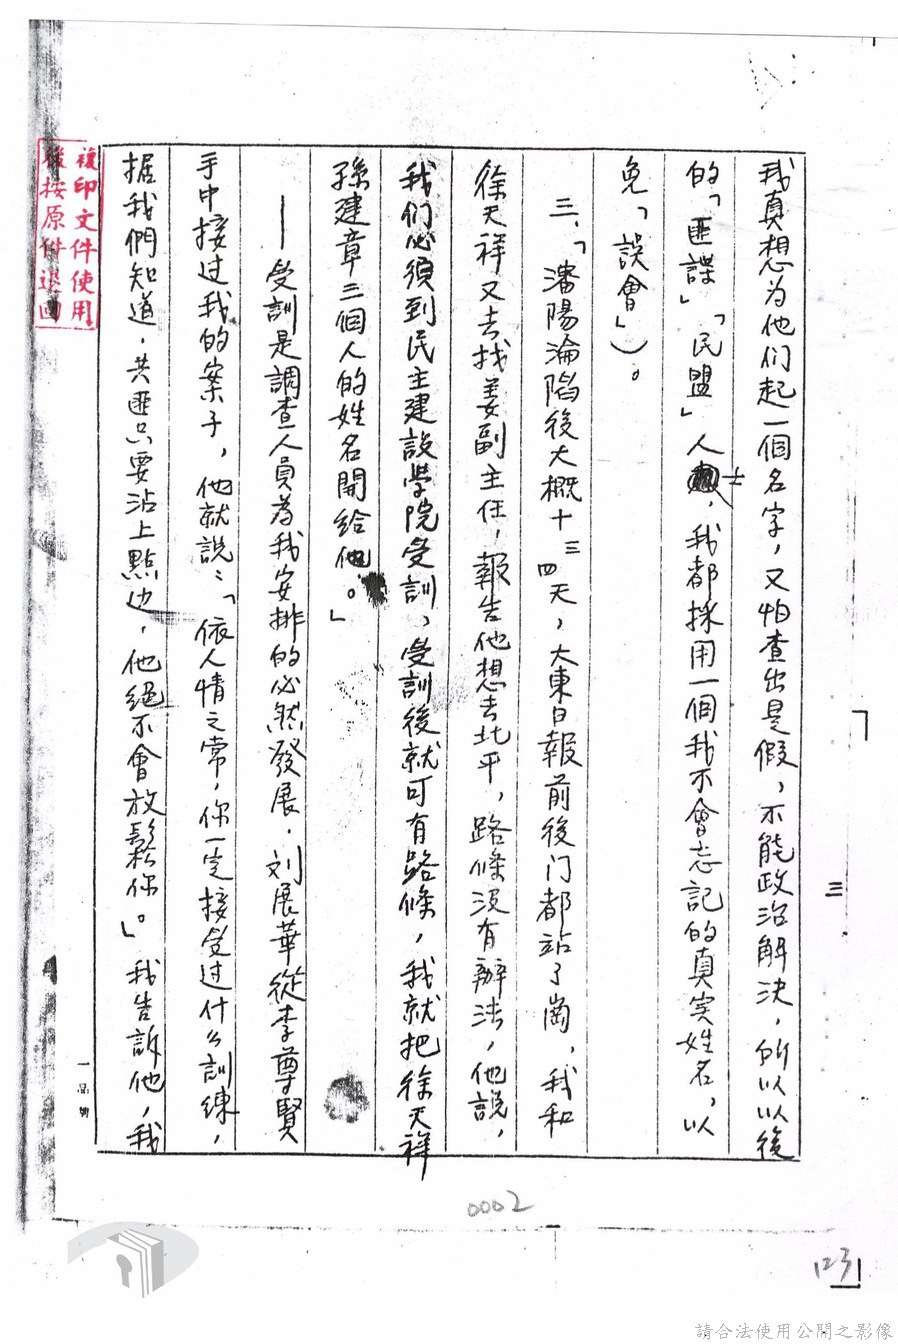 我真想为他们起一個名字，又怕查出是假，不能政治解決，所以以後
的「匪諜」「民盟」人士，我都採用一個我不會忘記的真实姓名，以
免「誤會」）。
三、「瀋陽淪陷後大概十三四天，大東日報前後门都站了崗，我和
徐天祥又去找姜副主任，報告他想去北平，路條沒有辦法，他說，
我们必須到民主建設學院受訓，受訓後就可有路條，我就把徐天祥
孫建章三個人的姓名開給他。」
——受訓是調查人員為我安排的必然發展．刘展華從李尊賢
手中接过我的案子，他就說：「依人情之常，你一定接受过什么訓練，
据我們知道，共匪只要沾上點边，他絕不會放鬆你。」我告訴他，我
三
複印文件使用
後按原件退回
一品興
0002
123
請合法使用公開之影像